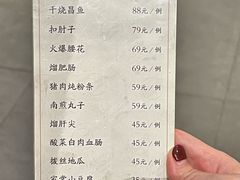 干烧昌鱼 88元/例
扣肘子 79元/例
火爆腰花 69元/例
熘肥肠 69元/例
猪肉炖粉条 59元/例
南煎丸子 59元/例
熘肝尖 45元/例
酸菜白肉血肠 45元/例
拔丝地瓜 45元/例
家常小豆腐